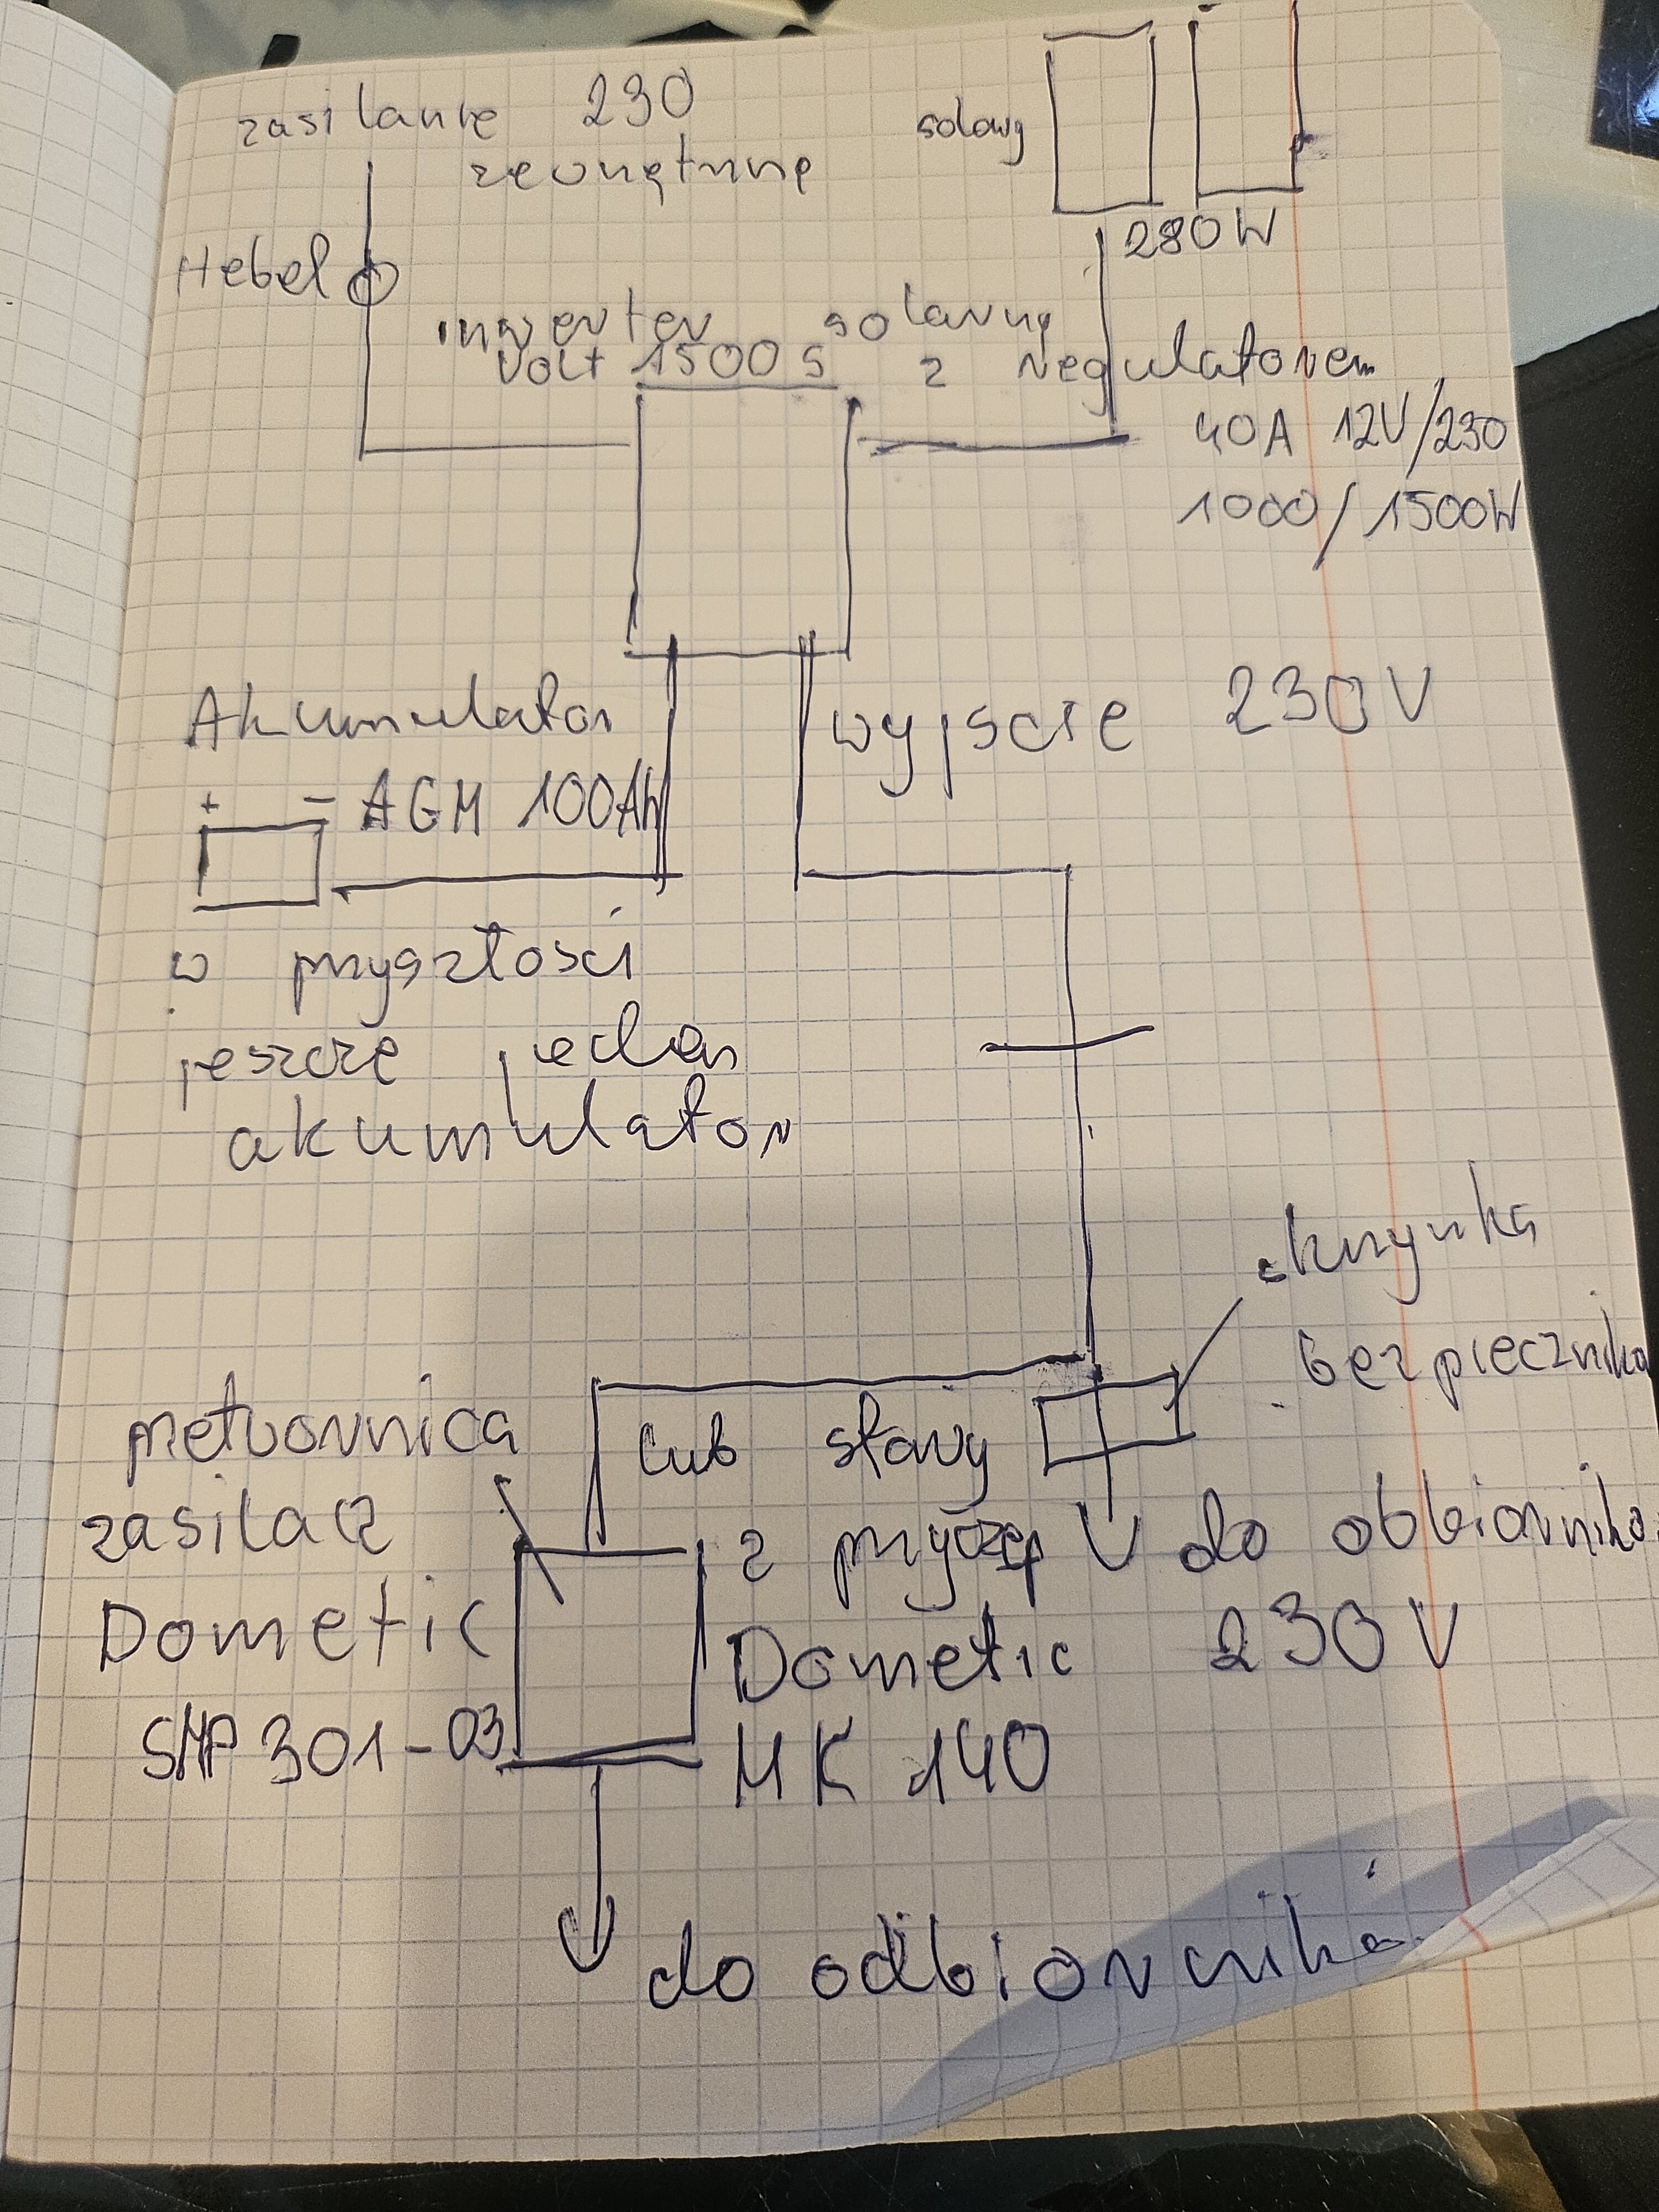 zasilanie 230
zewnętrzne
solary
280W
Hebel
inwerter solarny
Volt 1500 S z regulatorem
40A 12V/230
1000/1500W
Akumulator
+ - AGM 100Ah
wyjscie 230V
w przyszłości
jeszcze jeden
akumulator
skrzynka
bezpiecznika
przetwornica
zasilacz
Dometic
SMP 301-03
lub stary
z przyczep
Dometic
MK 140
do odbiornika
230V
do odbiornika